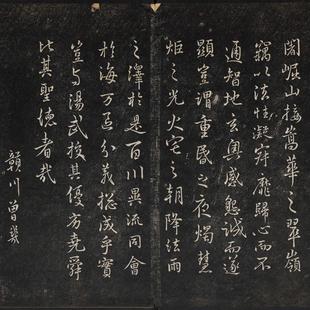 闍崛山接嵩華之翠嶺
竊以法性凝寂靡歸心而不
通智地玄奧感懇誠而遂
顯豈謂重昏之夜燭慧
炬之光火宅之朝降法雨
之澤於是百川異流同會
於海万區分義揔成乎實
豈与湯武校其優劣堯舜
比其聖德者哉
贛川曾幾